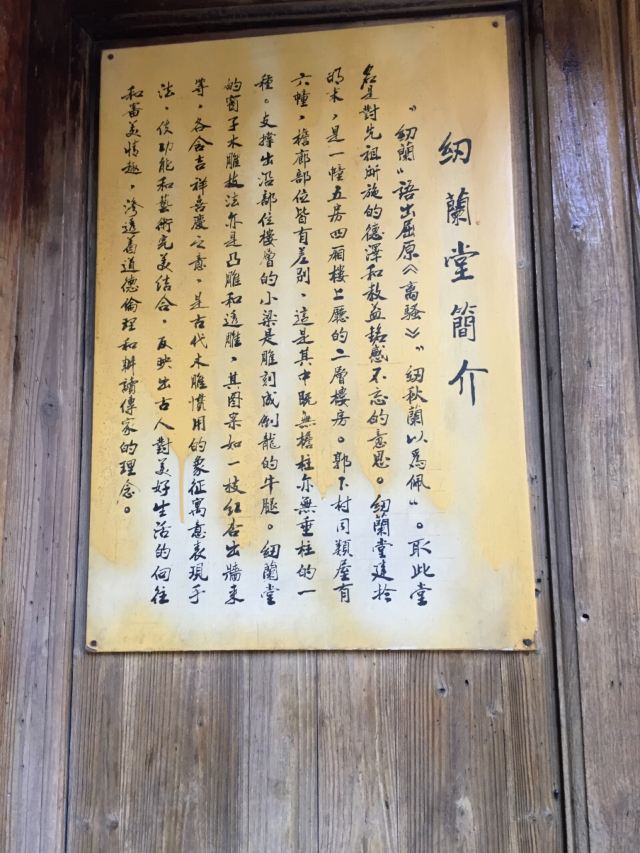 紉蘭堂簡介
“紉蘭”語出屈原《离騷》“紉秋蘭以為佩”。取此堂
名是對先祖所施的德澤和教益銘感不忘的意思。紉蘭堂建於
明末，是一幢五房四厢樓上廳的二層樓房。郭下村同類屋有
六幢，檐廊部位皆有差别，這是其中既無檐柱亦無垂柱的一
種。支撑出沿部位樓層的小梁是雕刻成倒龍的牛腿。紉蘭堂
的窗子木雕技法亦是凸雕和透雕，其图案如一枝红杏出牆来
等，各含吉祥喜慶之意，是古代木雕慣用的象征寓意表現手
法，使功能和藝術完美结合，反映出古人對美好生活的向往
和審美情趣，渗透着道德倫理和耕讀傳家的理念。